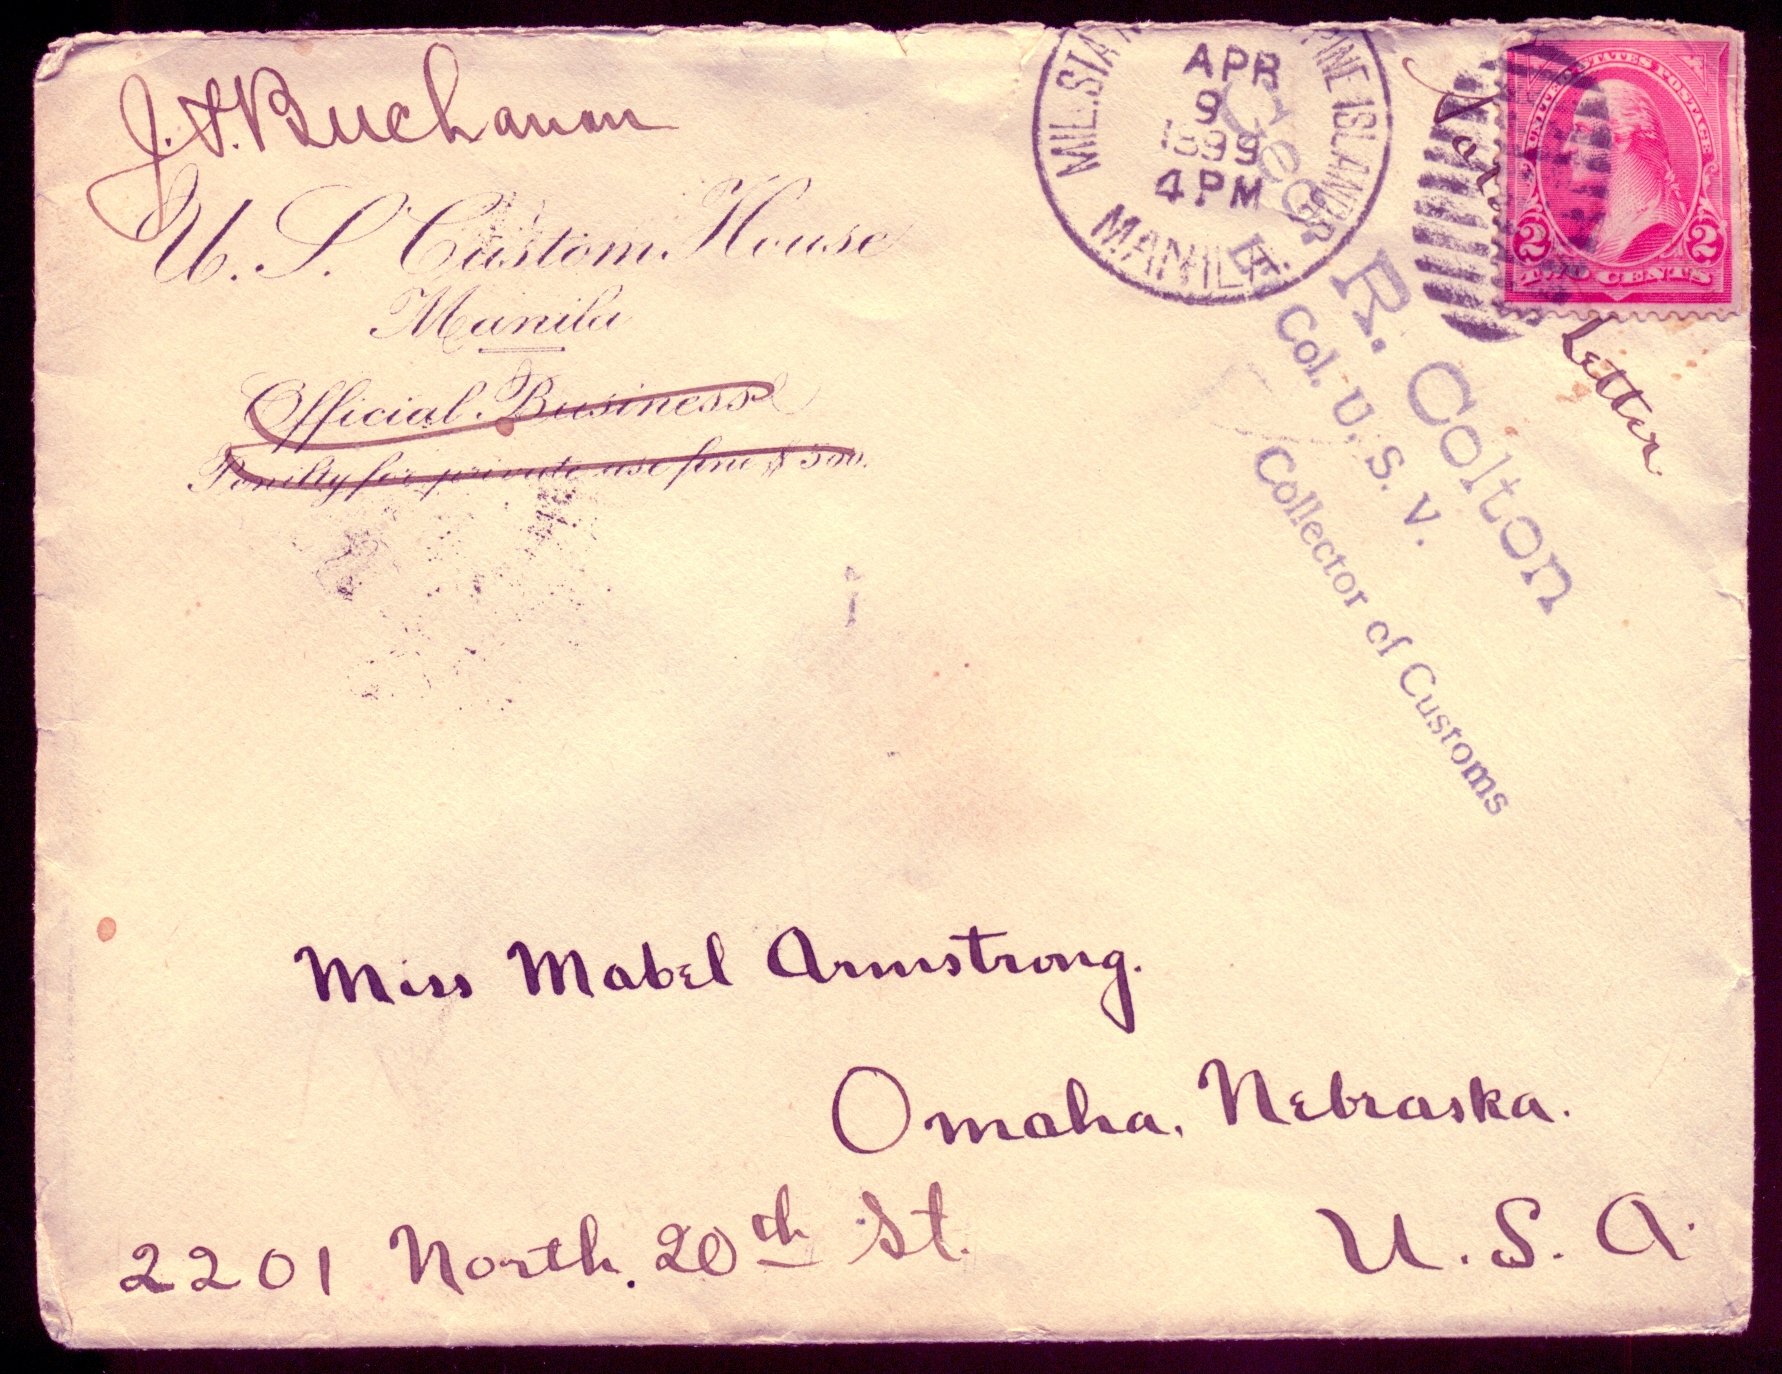 J. F. Buchanan
U. S. Custom House
Manila
Official Business
Penilty for private use fine $300.
MIL. STA PINE ISLANDS
APR
9
1899
4 PM
MANILA.
UNITED STATES POSTAGE
2 2
TWO CENTS
Letter
Geo. R. Colton
Lt. Col. U. S. V.
Collector of Customs
Miss Mabel Armstrong.
Omaha, Nebraska.
2201 North. 20th St.
U. S. A.